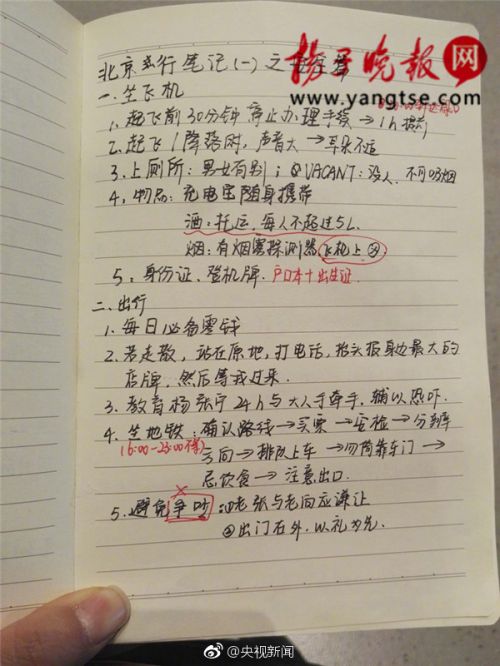 扬子晚报网
www.yangtse.com
北京之行笔记(一)之
一.坐飞机
1.起飞前30分钟停止办理手续→1h提前
2.起飞/降落时,声音大→耳朵不适
3.上厕所:男女有别; ②VACANT:没人.不可吸烟
4.物品:充电宝随身携带
酒:托运.每人不超过5L.
烟:有烟雾探测器.飞机上
5.身份证、登机牌.户口本+出生证
二.出行
1.每日必备零钱
2.若走散,站在原地,打电话,抬头报身边最大的
店牌.然后等我过来.
3.教育杨张宁24h与大人手牵手.辅以恐吓.
4.坐地铁:确认路线→买票→安检→分辨
(6:00-23:00停)
方向→排队上车→勿倚靠车门→
忌饮食→注意出口.
5.避免争吵:①老张与老向应谦让
②出门在外.以礼为先.
@央视新闻